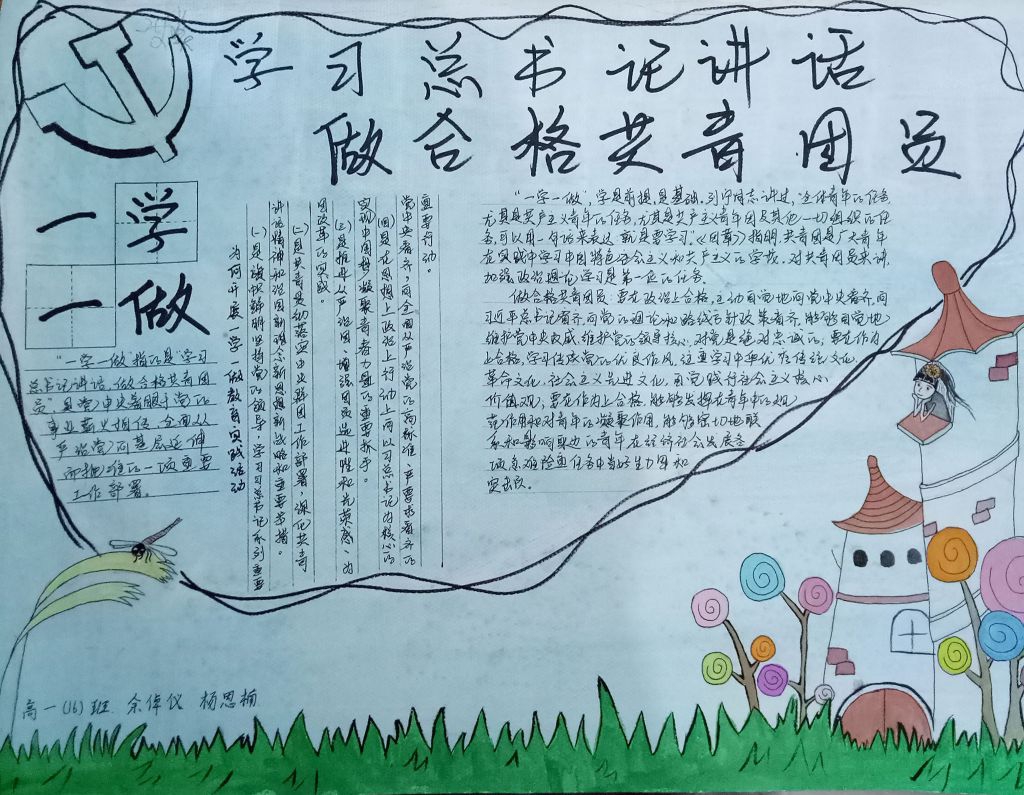 学习总书记讲话
做合格共青团员
一学
一做
"一学一做"指的是"学习
总书记讲话,做合格共青团
员",是党中央着眼于党的
事业薪火相传、全面从
严治党向基层延伸
而把准的一项重要
工作部署。
为何开展一学一做教育实践活动
(一)是旗帜鲜明坚持党的领导,学习习总书记系列重要
讲话精神和治国新理念新思想新战略和主要举措。
(二)是共青团动落实中央群团工作部署,深化共青
团改革的实践。
(三)是推进从严治团、增强团员先进性和光荣感、为
实现中国梦凝聚青春力量的重要抓手。
(四)是在思想上政治上行动上向以习总书记为核心的
党中央看齐,向全面从严治党的高标准、严要求看齐的
重要行动。
"一学一做",学是前提,是基础。列宁同志讲过,"全体青年的任务,
尤其是共产主义青年的任务,尤其是共产主义青年团及其他一切组织的任
务,可以用一句话来表达,就是要学习"《团章》指明,共青团是广大青年
在实践中学习中国特色社会主义和共产主义的学校。对共青团员来讲,
加强政治理论学习是第一位的任务。
做合格共青团员:要在政治上合格,主动自觉地向党中央看齐,向
习近平总书记看齐,向党的理论和路线方针政策看齐,能够自觉地
维护党中央权威,维护党的领导核心,对党是绝对忠诚的;要在作为
上合格,学习传承党的优良作风,注重学习中华优秀传统文化、
革命文化、社会主义先进文化,自觉践行社会主义核心
价值观;要在作为上合格,能够发挥在青年中的模
范作用和对青年的凝聚作用,能够密切地联
系和影响取边的青年在经济社会发展各
项急难险重任务中当好生力军和
突击队。
高一(16)班 余倬仪 杨恩楠